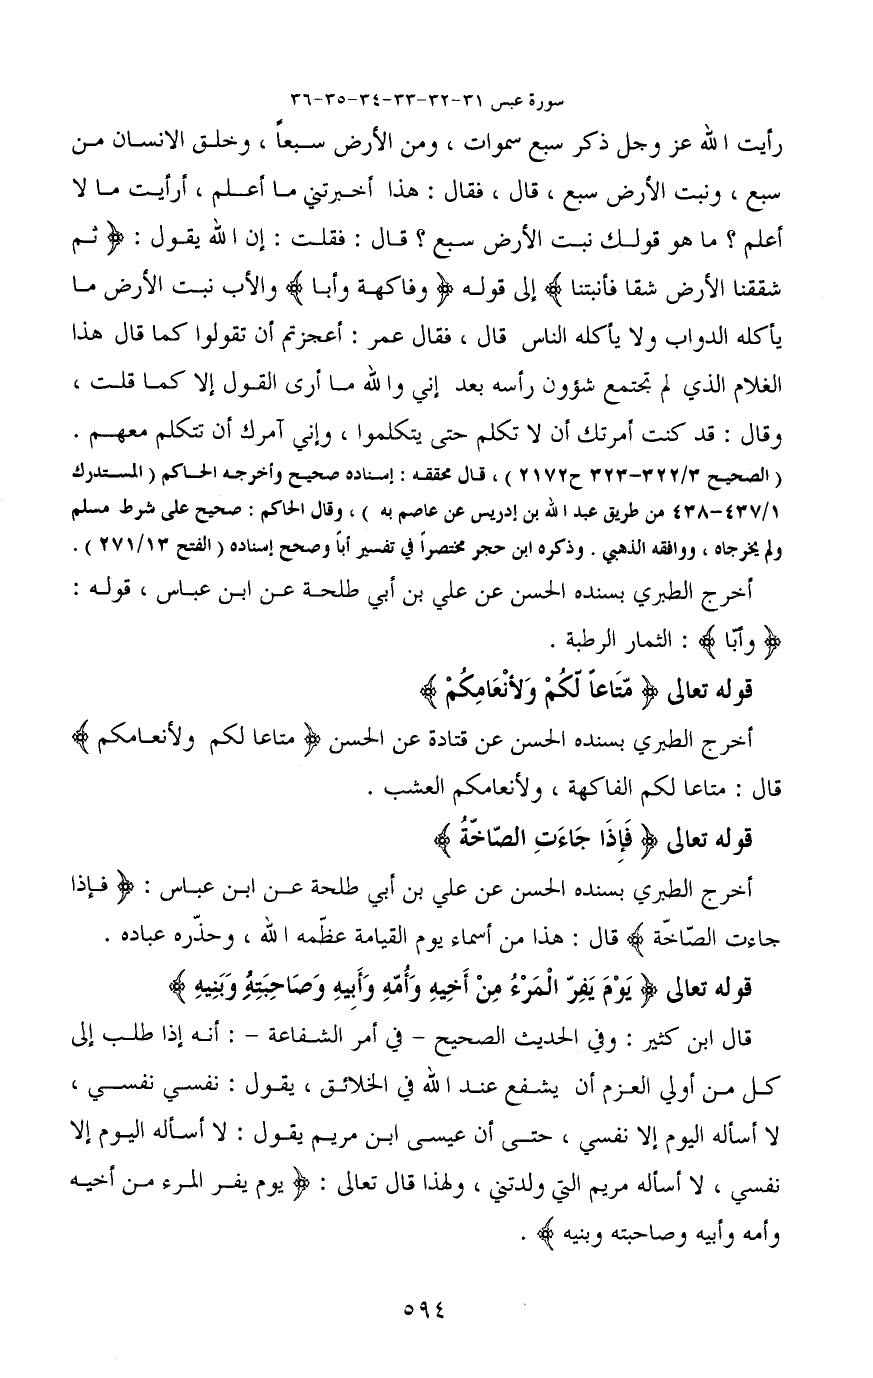 سورة عبس ٣١-٣٢-٣٣-٣٤-٣٥-٣٦
رأيت الله عز وجل ذكر سبع سموات ، ومن الأرض سبعاً ، وخلق الانسان من
سبع ، ونبت الأرض سبع ، قال ، فقال : هذا أخبرتني ما أعلم ، أرأيت ما لا
أعلم ؟ ما هو قولك نبت الأرض سبع ؟ قال : فقلت : إن الله يقول : ﴿ ثم
شققنا الأرض شقا فأنبتنا ﴾ إلى قوله ﴿ وفاكهة وأبا ﴾ والأب نبت الأرض ما
يأكله الدواب ولا يأكله الناس قال ، فقال عمر : أعجزتم أن تقولوا كما قال هذا
الغلام الذي لم تجتمع شؤون رأسه بعد إني والله ما أرى القول إلا كما قلت ،
وقال : قد كنت أمرتك أن لا تكلم حتى يتكلموا ، وإني آمرك أن تتكلم معهم .
( الصحيح ٣/٣٢٢-٣٢٣ ح٢١٧٢ ) ، قال محققه : إسناده صحيح وأخرجه الحاكم ( المستدرك
١/٤٣٧-٤٣٨ من طريق عبد الله بن إدريس عن عاصم به ) ، وقال الحاكم : صحيح على شرط مسلم
ولم يخرجاه ، ووافقه الذهبي . وذكره ابن حجر مختصراً في تفسير أباً وصحح إسناده ( الفتح ١٣/٢٧١ ) .
أخرج الطبري بسنده الحسن عن علي بن أبي طلحة عن ابن عباس ، قوله :
﴿ وأبّا ﴾ : الثمار الرطبة .
قوله تعالى ﴿ مّتَاعاً لّكُمْ وَلأنْعَامِكُمْ ﴾
أخرج الطبري بسنده الحسن عن قتادة عن الحسن ﴿ متاعا لكم ولأنعامكم ﴾
قال : متاعا لكم الفاكهة ، ولأنعامكم العشب .
قوله تعالى ﴿ فَإِذَا جَاءَتِ الصّاخّةُ ﴾
أخرج الطبري بسنده الحسن عن علي بن أبي طلحة عن ابن عباس : ﴿ فإذا
جاءت الصّاخّة ﴾ قال : هذا من أسماء يوم القيامة عظّمه الله ، وحذّره عباده .
قوله تعالى ﴿ يَوْمَ يَفِرّ الْمَرْءُ مِنْ أَخِيهِ وَأُمّهِ وَأَبِيهِ وَصَاحِبَتِهُ وَبَنِيهِ ﴾
قال ابن كثير : وفي الحديث الصحيح - في أمر الشفاعة - : أنه إذا طلب إلى
كل من أولي العزم أن يشفع عند الله في الخلائق ، يقول : نفسي نفسي ،
لا أسأله اليوم إلا نفسي ، حتى أن عيسى ابن مريم يقول : لا أسأله اليوم إلا
نفسي ، لا أسأله مريم التي ولدتني ، ولهذا قال تعالى : ﴿ يوم يفر المرء من أخيه
وأمه وأبيه وصاحبته وبنيه ﴾ .
٥٩٤